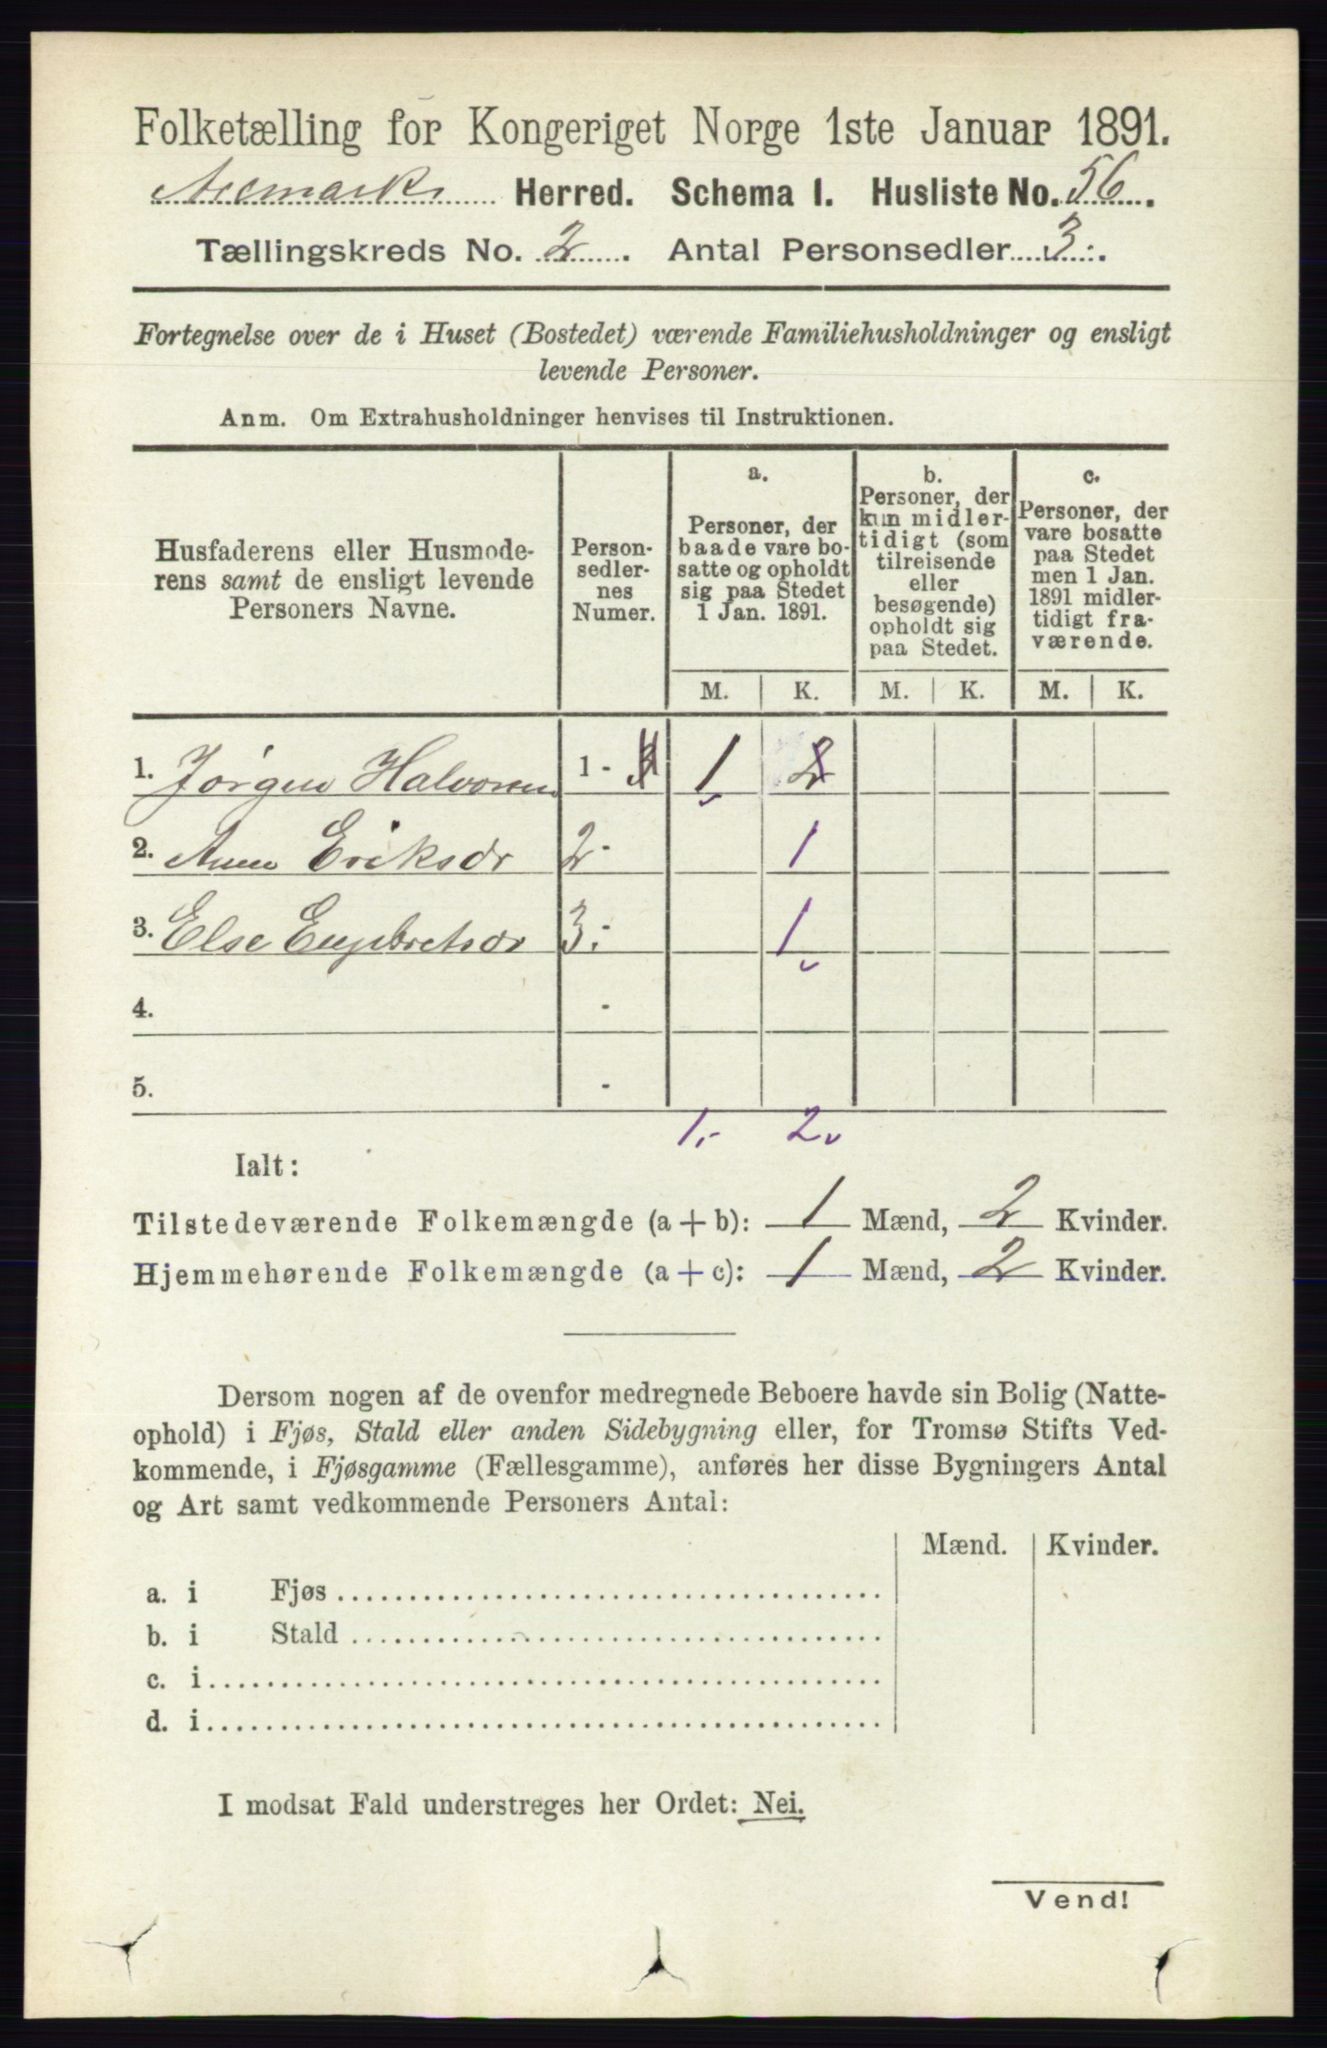 Folketælling for Kongeriget Norge 1ste Januar 1891.
Aremark Herred. Schema I. Husliste No. 56.
Tællingskreds No. 2. Antal Personsedler 3.
Fortegnelse over de i Huset (Bostedet) værende Familiehusholdninger og ensligt
levende Personer.
Anm. Om Extrahusholdninger henvises til Instruktionen.
Husfaderens eller Husmode-
rens samt de ensligt levende
Personers Navne.
Person-
sedler-
nes
Numer.
a.
Personer, der
baade vare bo-
satte og opholdt
sig paa Stedet
1 Jan. 1891.
b.
Personer, der
kun midler-
tidigt (som
tilreisende
eller
besøgende)
opholdt sig
paa Stedet.
c.
Personer, der
vare bosatte
paa Stedet
men 1 Jan.
1891 midler-
tidigt fra-
værende.
M. K. M. K. M. K.
1. Jørgen Halvorsen 1 - 1 2
2. Eriksdr 2 - 1
3. Else Engebretsdr 3 - 1
4. -
5. -
1. 2
Ialt:
Tilstedeværende Folkemængde (a + b): 1 Mænd, 2 Kvinder.
Hjemmehørende Folkemængde (a + c): 1 Mænd, 2 Kvinder.
Dersom nogen af de ovenfor medregnede Beboere havde sin Bolig (Natte-
ophold) i Fjøs, Stald eller anden Sidebygning eller, for Tromsø Stifts Ved-
kommende, i Fjøsgamme (Fællesgamme), anføres her disse Bygningers Antal
og Art samt vedkommende Personers Antal:
Mænd. Kvinder.
a. i Fjøs
b. i Stald
c. i
d. i
I modsat Fald understreges her Ordet: Nei.
Vend!